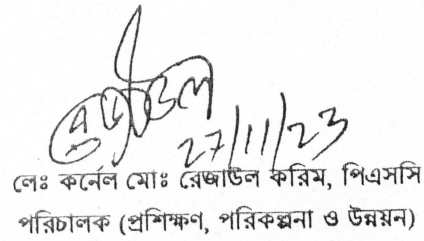 রেজাউল
27/11/23
লেঃ কর্নেল মোঃ রেজাউল করিম, পিএসসি
পরিচালক (প্রশিক্ষণ, পরিকল্পনা ও উন্নয়ন)